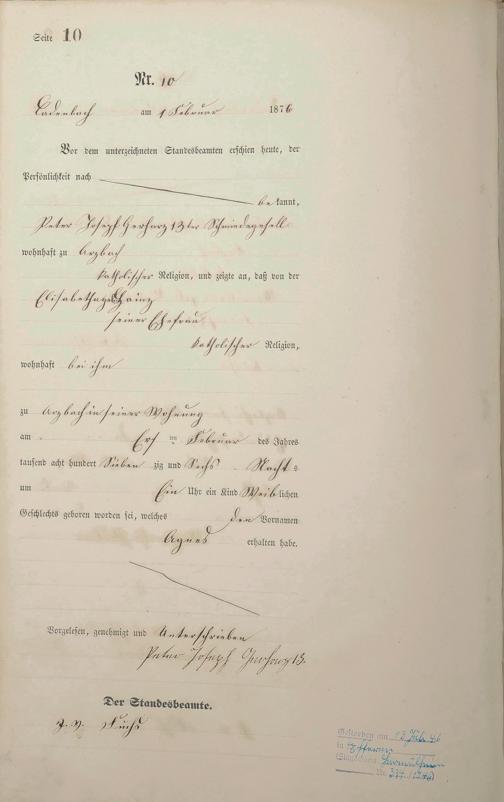 Seite 10
Nr. 10
Cadenbach am 1 Februar 1876
Vor dem unterzeichneten Standesbeamten erschien heute, der
Persönlichkeit nach
bekannt,
Peter Joseph Gerharz 13ter Schmiedegesell
wohnhaft zu Arzbach
katholischer Religion, und zeigte an, daß von der
Elisabetha geb. Hainz
seiner Ehefrau
katholischer Religion,
wohnhaft bei ihm
zu Arzbach in seiner Wohnung
am Ersten Februar des Jahres
tausend acht hundert Sieben zig und Sechs Nachts
um Ein Uhr ein Kind Weiblichen
Geschlechts geboren worden sei, welches den Vornamen
Agnes erhalten habe.
Vorgelesen, genehmigt und Unterschrieben
Peter Joseph Gerharz 13.
Der Standesbeamte.
J. V. Fuchs
Gestorben am 13. Feb. 46
in
(Standesamt
Nr.